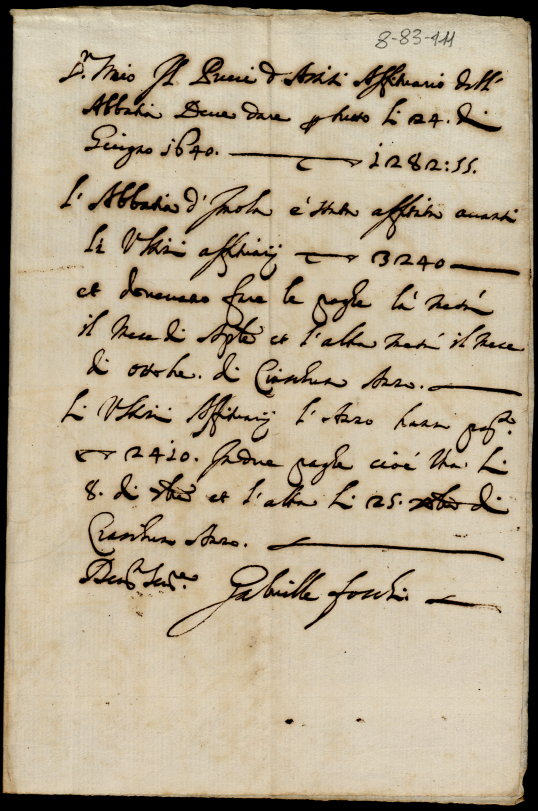 8-83-411
Il Prete d'Assisi Affittuario dell'
Abbatia Deve dare p tutto li 24. di
Giugno 1640. 1282:55.
l'Abbatia d'Imola è stata affittata avanti
li Ultimi affittuarij 3240
et dovevano fare le paghe la metà
il mese di et l'altra metà il mese
di ottobre. di Ciaschun Anno.
li Ultimi Affittuarij l'Anno hanno
2410. In due paghe cioè Una li
8. di et l'altra li 25. di
Ciaschun Anno.
Gabrielle foschi